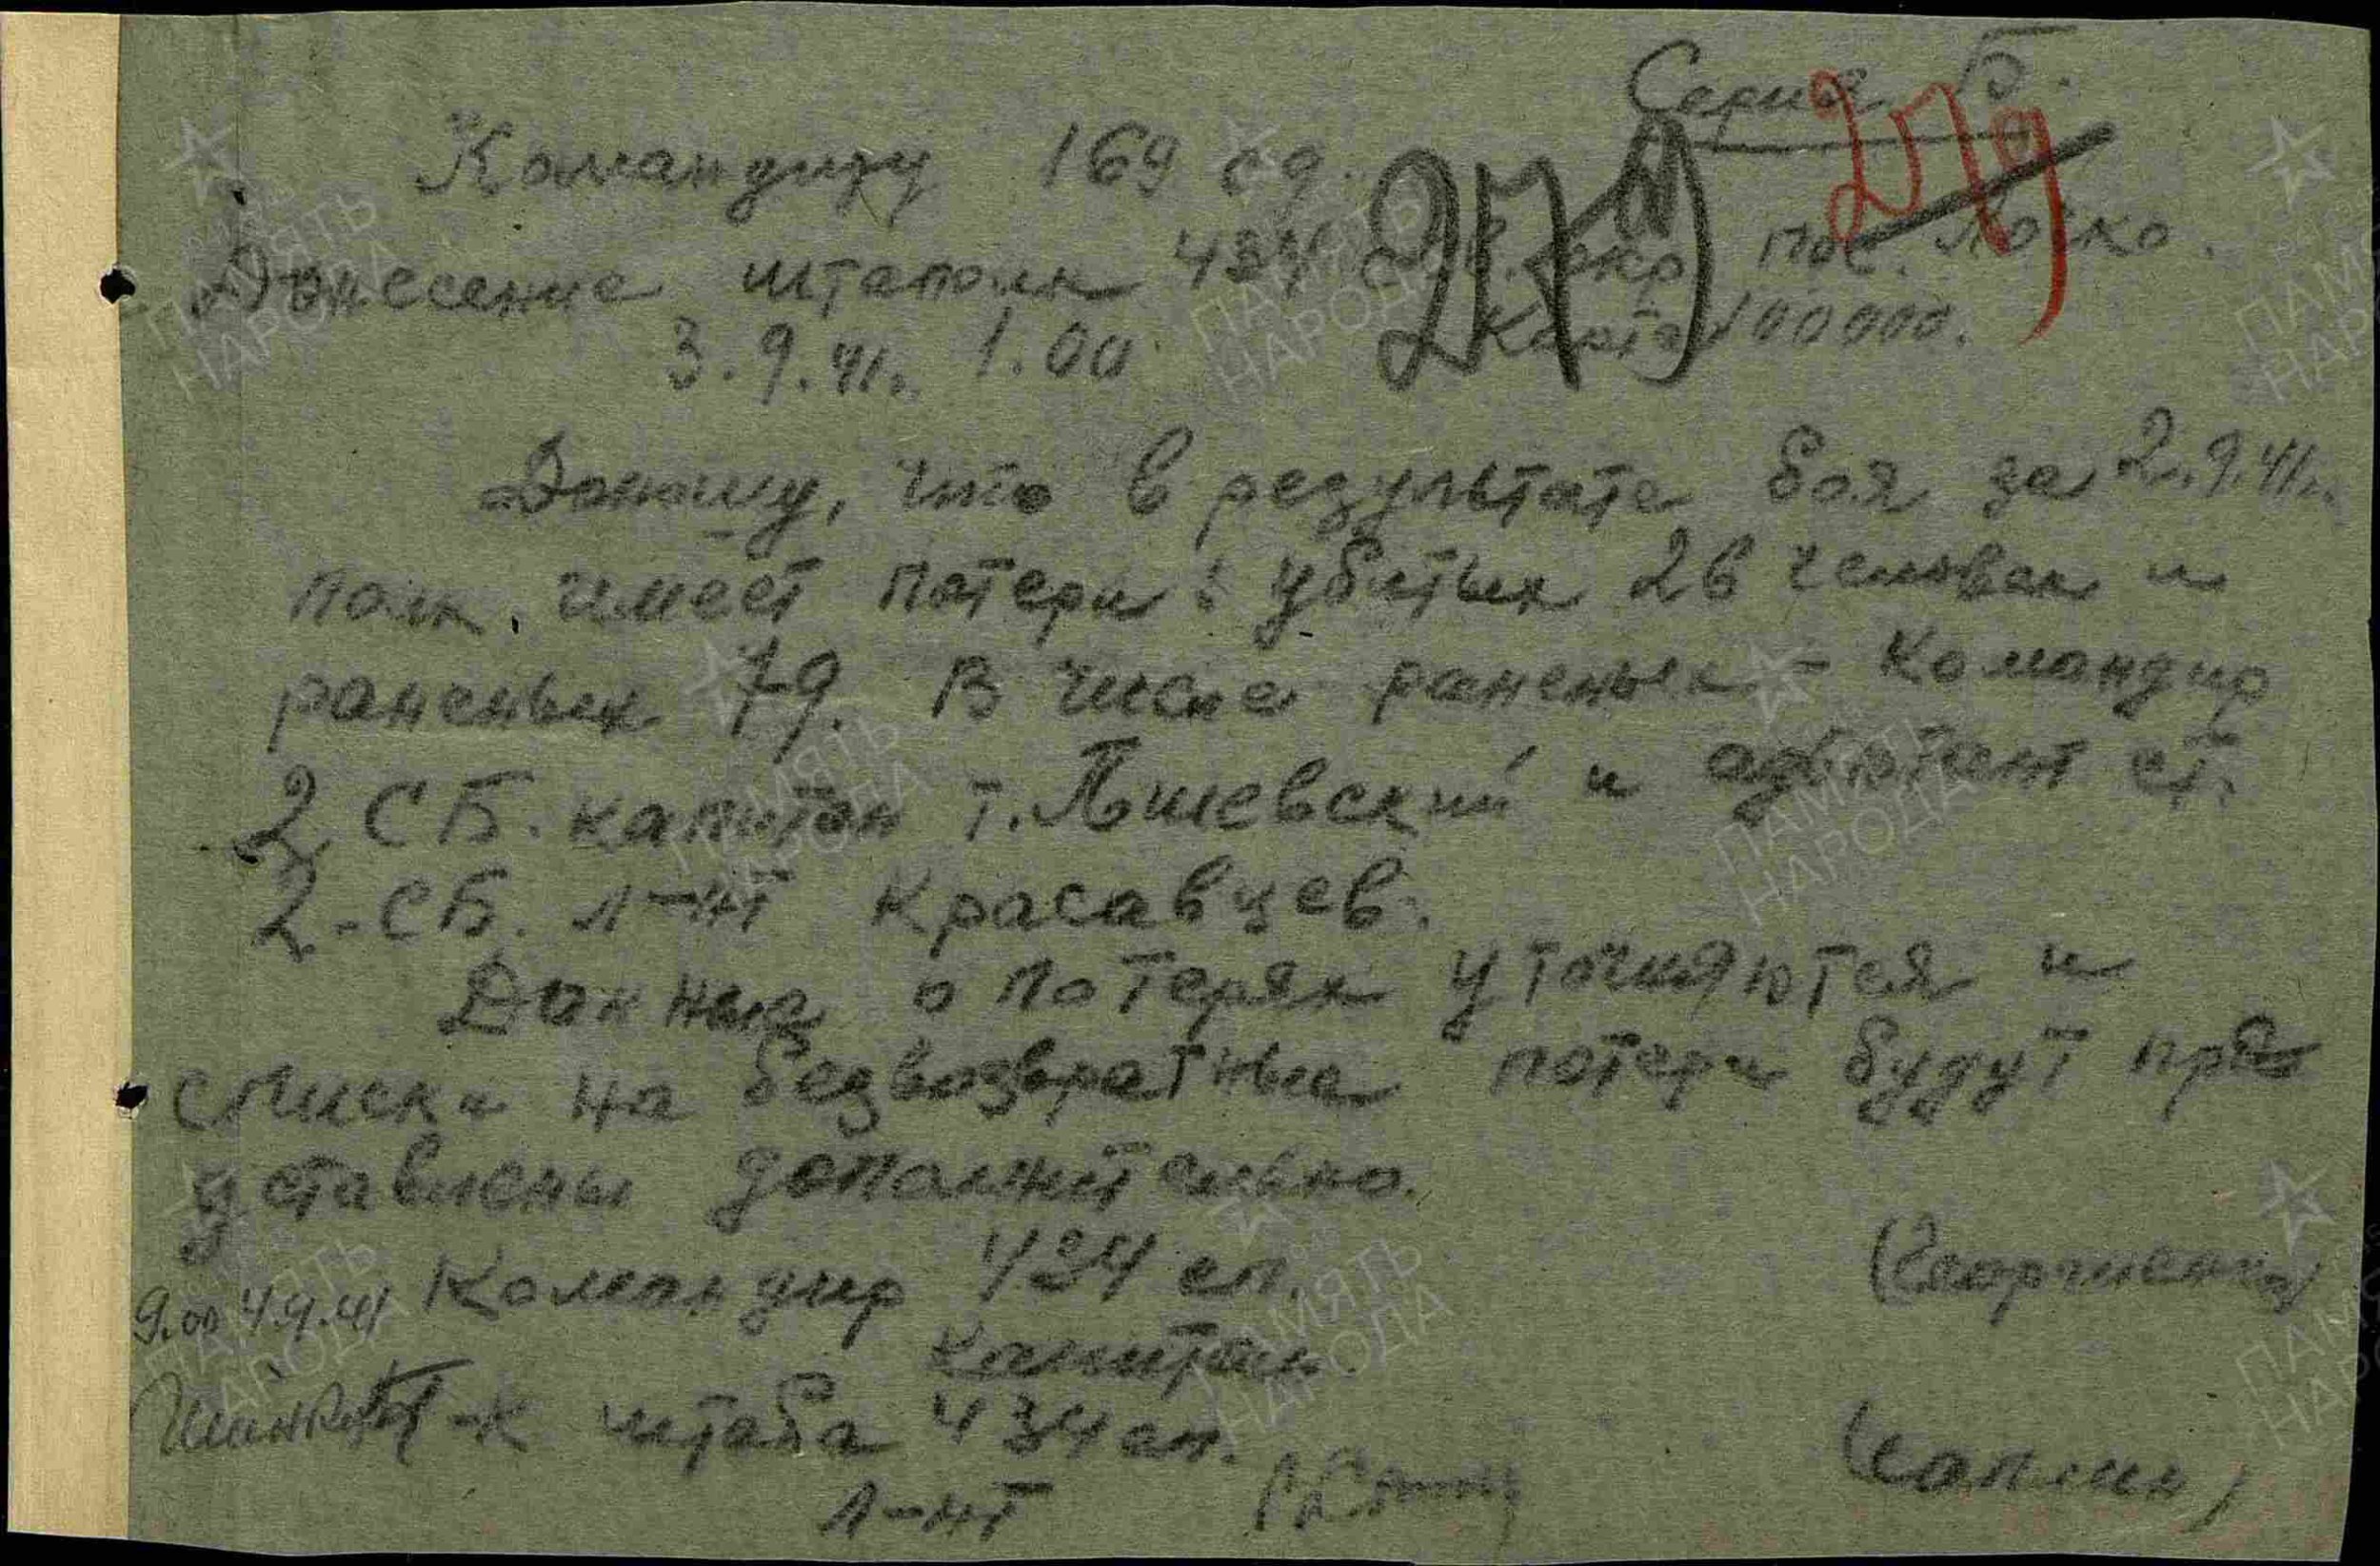 Серия Б.
Командиру 169 сд.
Донесение штаполк 434 окр. пос. Лоско.
3.9.41г. 1.00 Карта 100000.
279 279
Доношу, что в результате боя за 2.9.41г.
полк имеет потери: убитых 26 человек и
раненых 79. В числе раненых - Командир
2 СБ. капитан т. Льшевский и адъютант ст.
2-СБ. л-нт Красавцев.
Данные о потерях уточняются и
списки на безвозвратные потери будут пре
дставлены дополнительно.
Командир 434 сп.
9.00 4.9.41
капитан
Н-к штаба 434 сп.
л-нт
ПАМЯТЬ НАРОДА